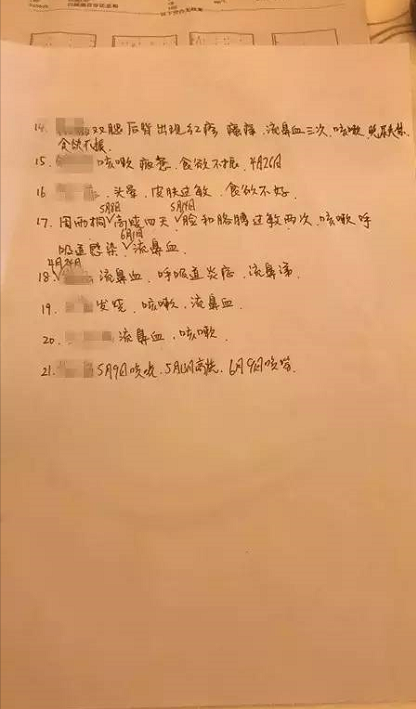 14. 双腿后背出现红疹 瘙痒、流鼻血三次、咳嗽、
食欲不振
15、 咳嗽 疲惫、食欲不振、4月26日
16 、头晕、皮肤过敏、食欲不好、
5月8日 5月14日
17、周雨桐√高烧四天√脸和胳膊过敏两次、咳嗽呼
6月1日
吸道感染√流鼻血
4月26日
18、√ 流鼻血、呼吸道炎症、流鼻涕
19、 发烧、咳嗽、流鼻血、
20、 流鼻血、咳嗽、
21、 5月9日咳嗽、高烧、6月9日咳嗽、